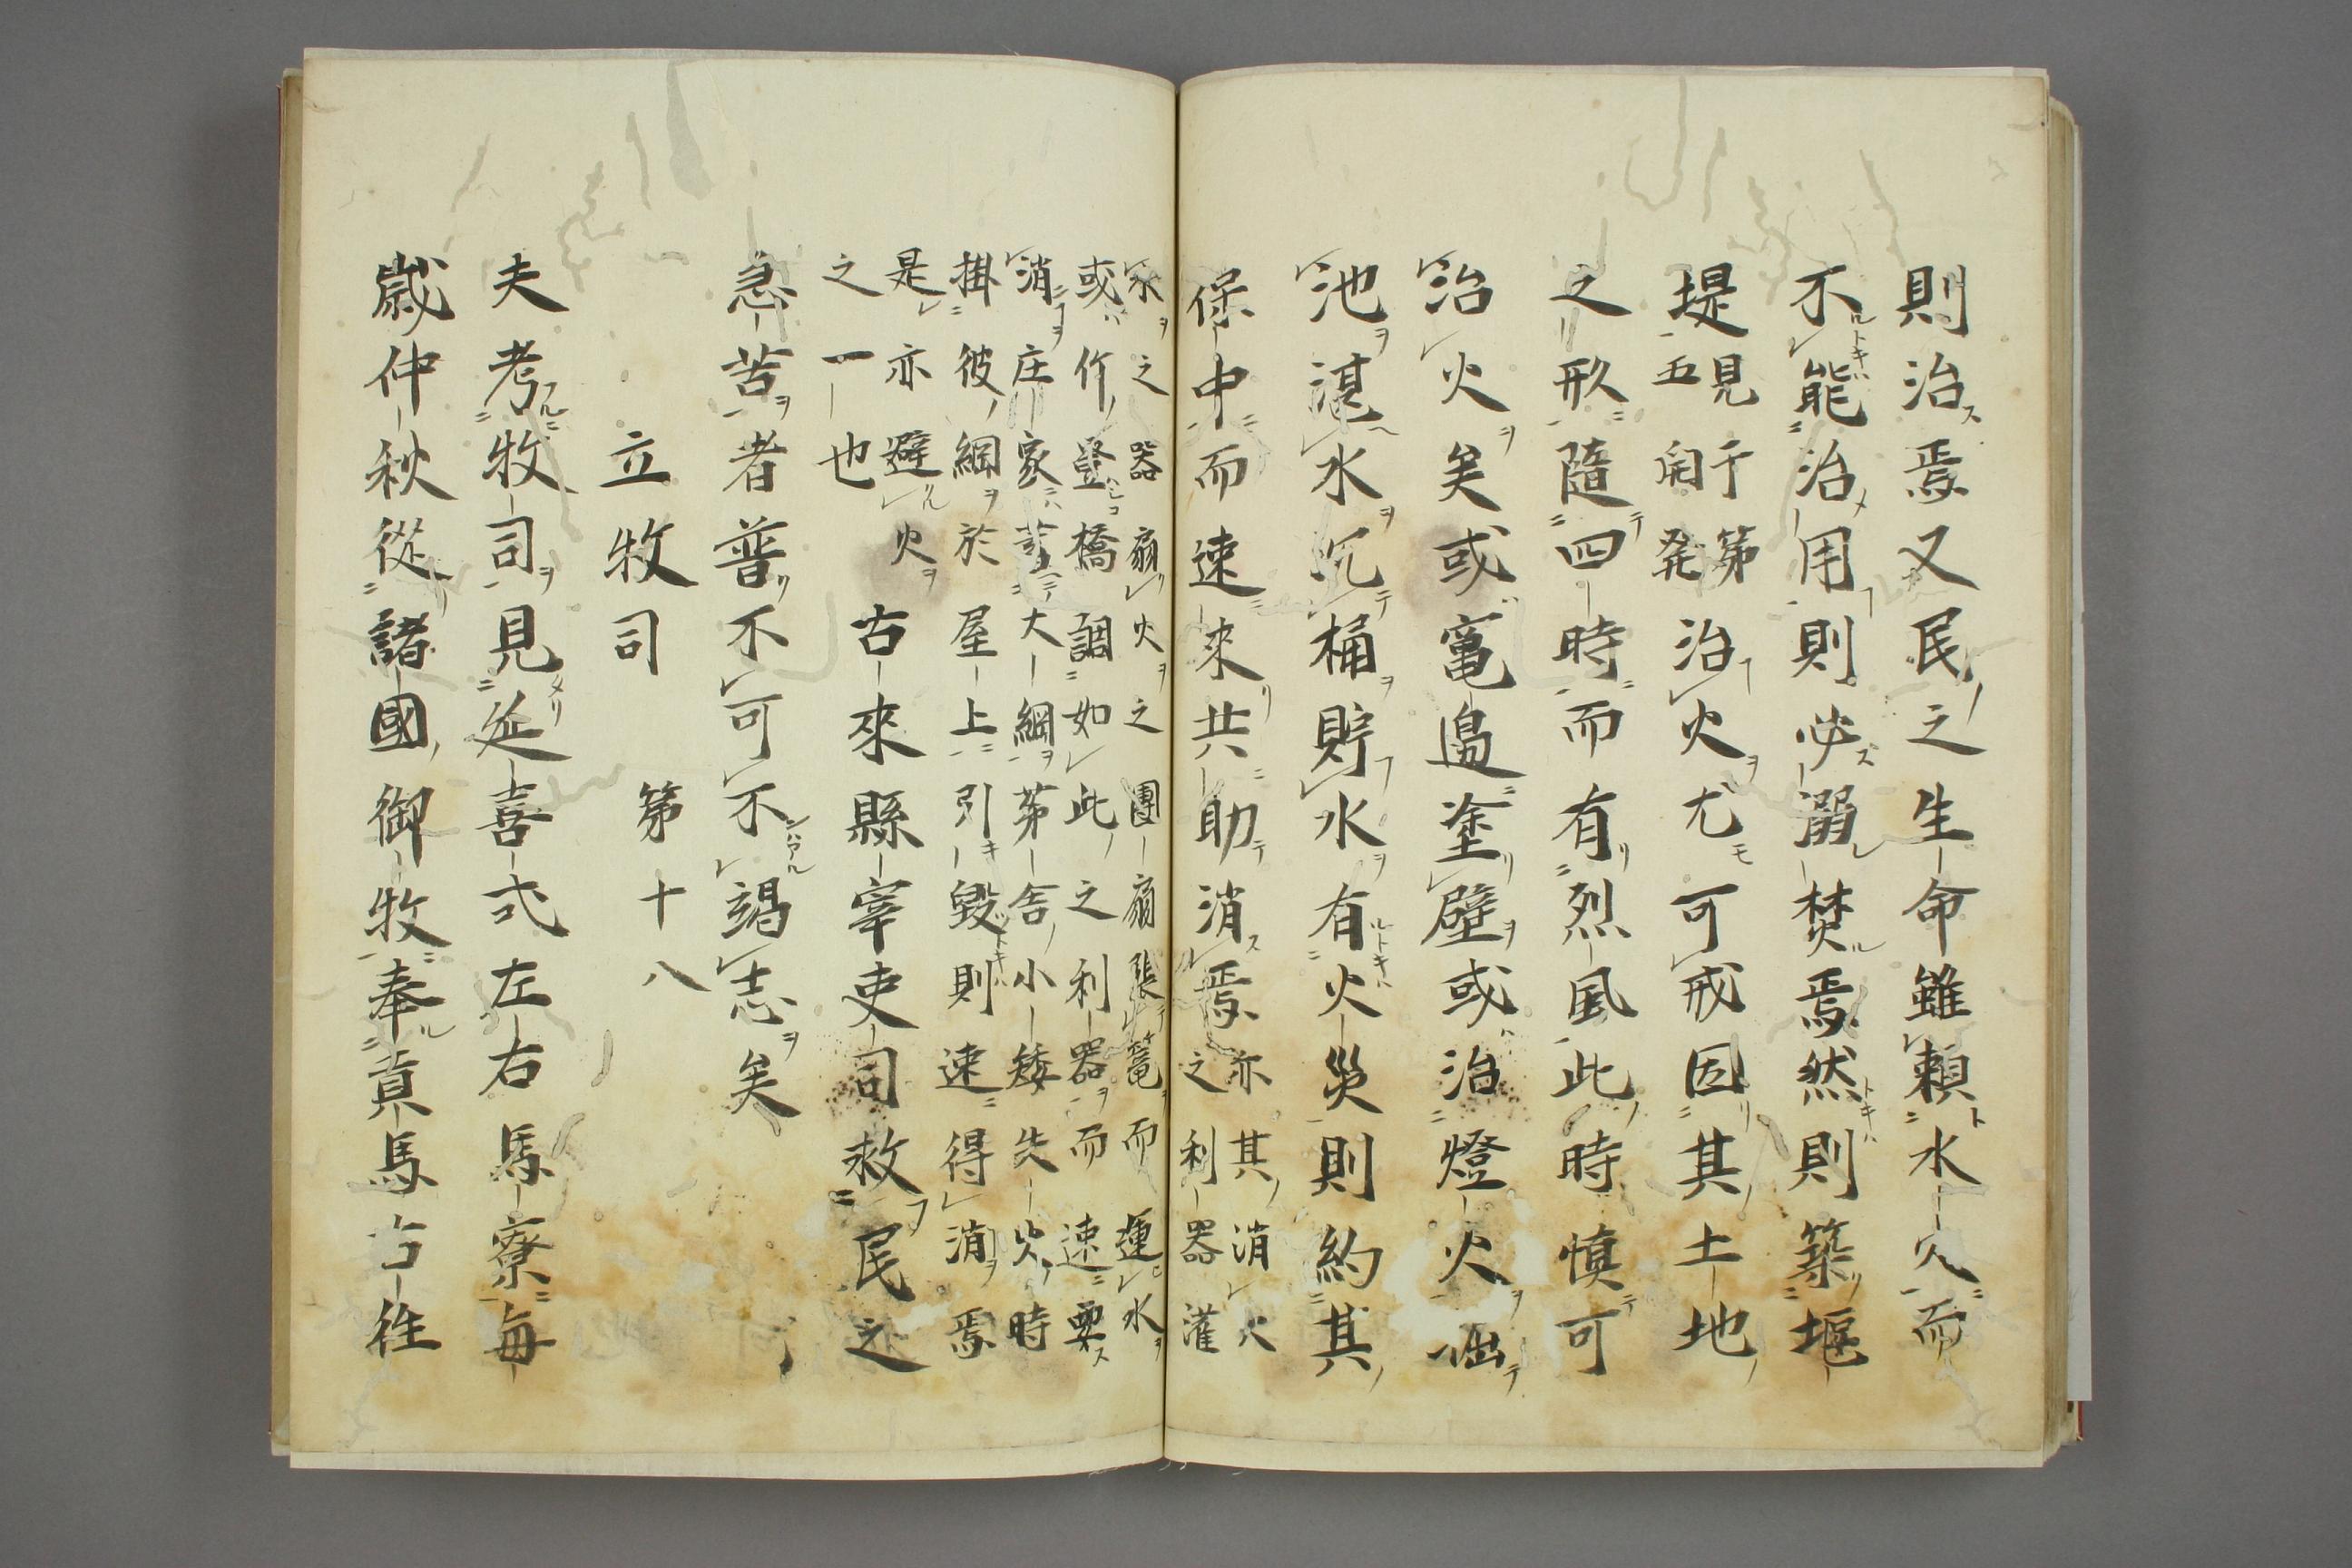 則治焉又民之生命雖賴水火而
不能治用則必溺焚焉然則築堰
堤見于第五開発治火尤可戒因其土地
之形隨四時而有烈風此時慎可
治火矣或竃邊塗壁或治燈火或
池湛水沉桶貯水有火災則約其
保中而速來共助消焉亦其消火之利器灌
水之器扇火之團扇張篭而運水
或竹登橋調如此之利器而速要
消庄家苇大綱茅舍小矮失火時
掛彼綱於屋上引毀則速得消焉
是亦避火
之一也
古來縣宰吏司救民之
急苦者普不可不竭志矣
立牧司 第十八
夫考牧司見延喜式左右馬寮毎
歳仲秋從諸國御牧奉貢馬古往